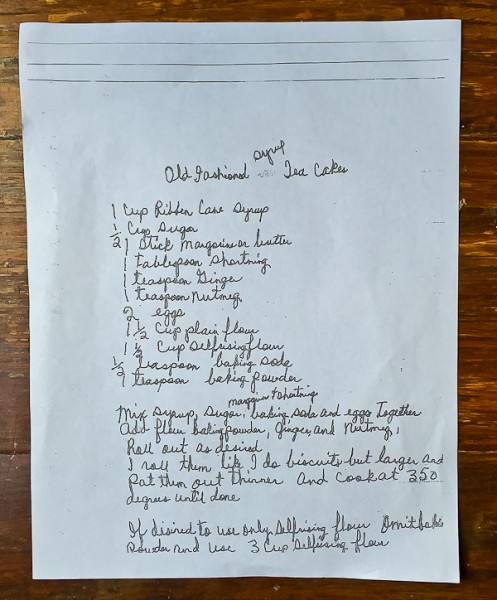 Old Fashioned syrup Tea Cakes
1 Cup Ribbon Cane Syrup
1/2 Cup Sugar
1 Stick Margarine or butter
1 tablespoon Shortning
1 teaspoon Ginger
1 teaspoon Nutmeg
2 eggs
1 1/2 Cup plain flour
1 1/2 Cup Selfrising flour
1/2 teaspoon baking soda
1 teaspoon baking powder
margarine & Shortning
Mix Syrup, Sugar, baking soda and eggs Together
Add flour baking powder, Ginger, and Nutmeg,
Roll out as desired
I roll them like I do biscuits but larger and
Pat them out Thinner and Cook at 350
degrees until done
If desired to use only Selfrising flour Omit
Powder and use 3 Cup Selfrising flour